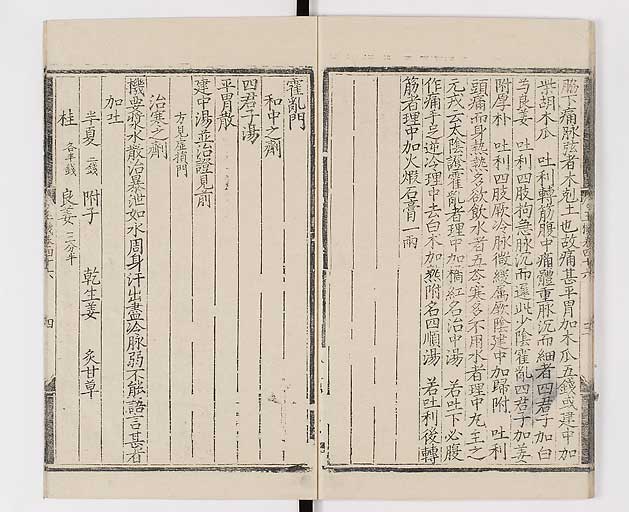 脇下痛脉弦者木剋土也故痛甚平胃加木瓜五錢或建中加
柴胡木瓜　吐利轉筋腹中痛體重脉沉而細者四君子加白
芍良姜　吐利四肢拘急脉沉而遲此少陰霍亂四君子加姜
附厚朴　吐利四肢厥冷脉微緩属厥陰建中加歸附　吐利
頭痛而身熱熱多欲飲水者五苓寒多不用水者理中丸主之
元戎云太陰證霍亂者理中加橘紅名治中湯　若吐下必腹
作痛手足逆冷理中去白木加熟附名四順湯　若吐利後轉
筋者理中加火煅石膏一兩
霍亂門
和中之劑
四君子湯
平胃散
建中湯並治證見前
方見瘧積門
治寒之劑
機要漿水散治暴泄如水周身汗出盡冷脉弱不能語言甚者
加吐
半夏二錢　附子　乾生姜　炙甘草
桂各半錢　良姜二分半
四